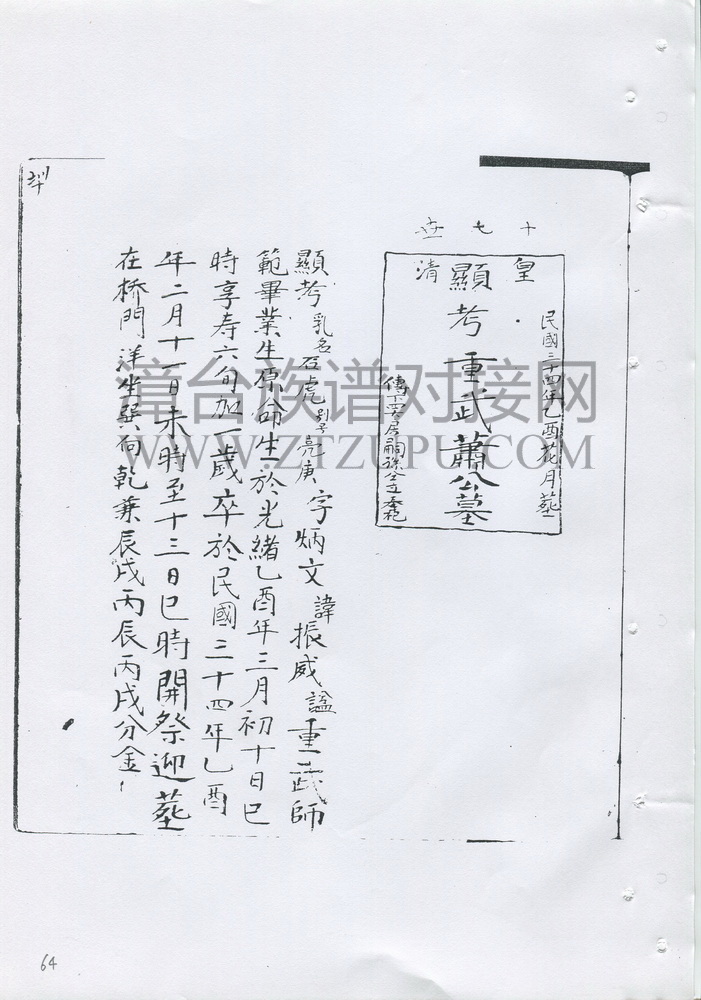 十七世
民國三十四年乙酉花月葬
皇清
顯考重武蕭公墓
嗣孫仝立奉祀
顯考乳名石虎別号亮庚字炳文諱振威諡重武師
範畢業生原命生於光緒乙酉年三月初十日巳
時享寿六旬加一歲卒於民國三十四年乙酉
年二月十一日未時至十三日巳時開祭迎葬
在桥門洋坐巽向乾兼辰戌丙辰丙戌分金
漳台族谱对接网
WWW.ZTZUPU.COM
64